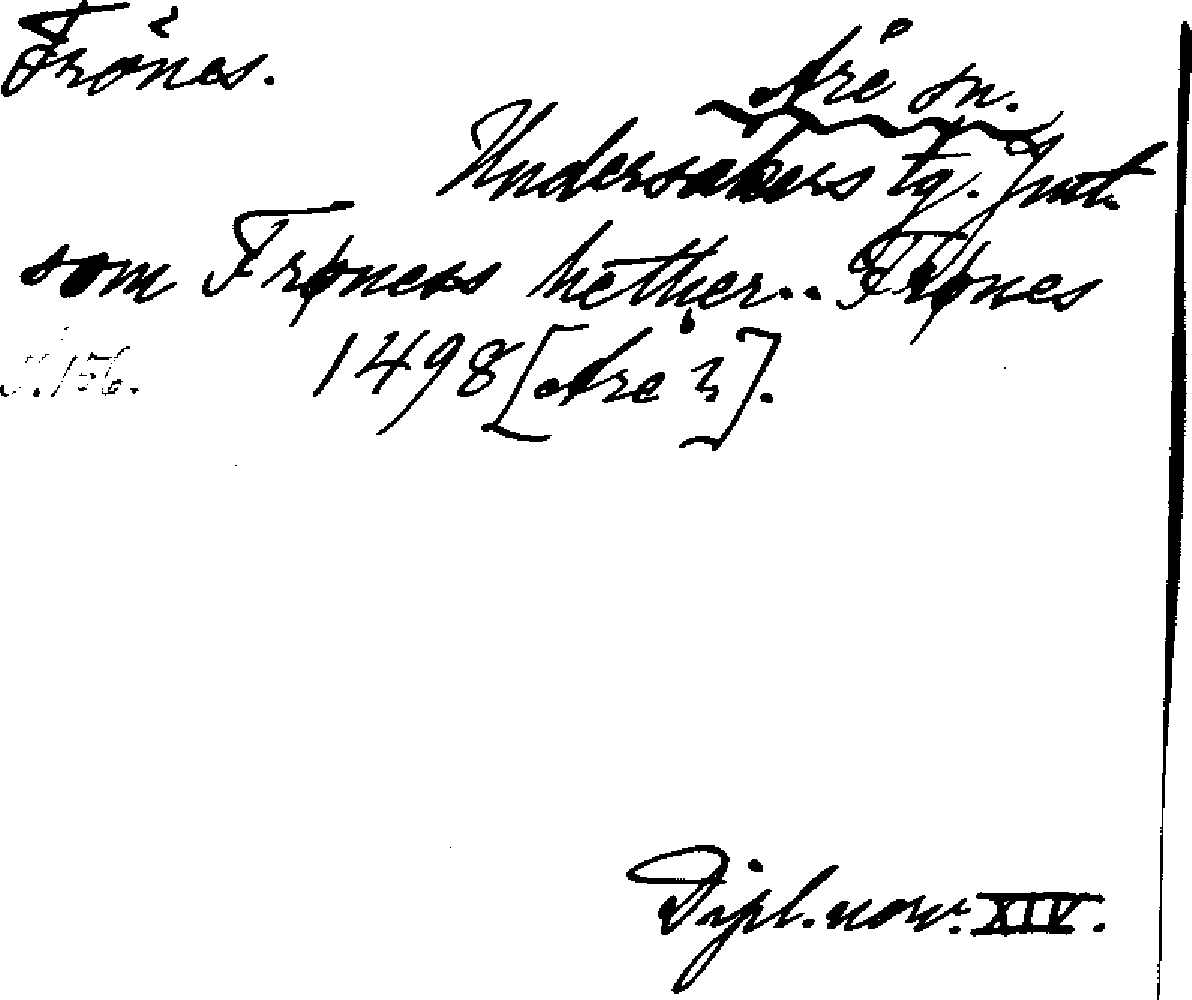 Frönes.
Åre sn.
Undersåkers tg. Jmtl.
som Frøness hether.. Frønes
S. 156. 1498 [Åre sn].
Dipl. norv. XIV.